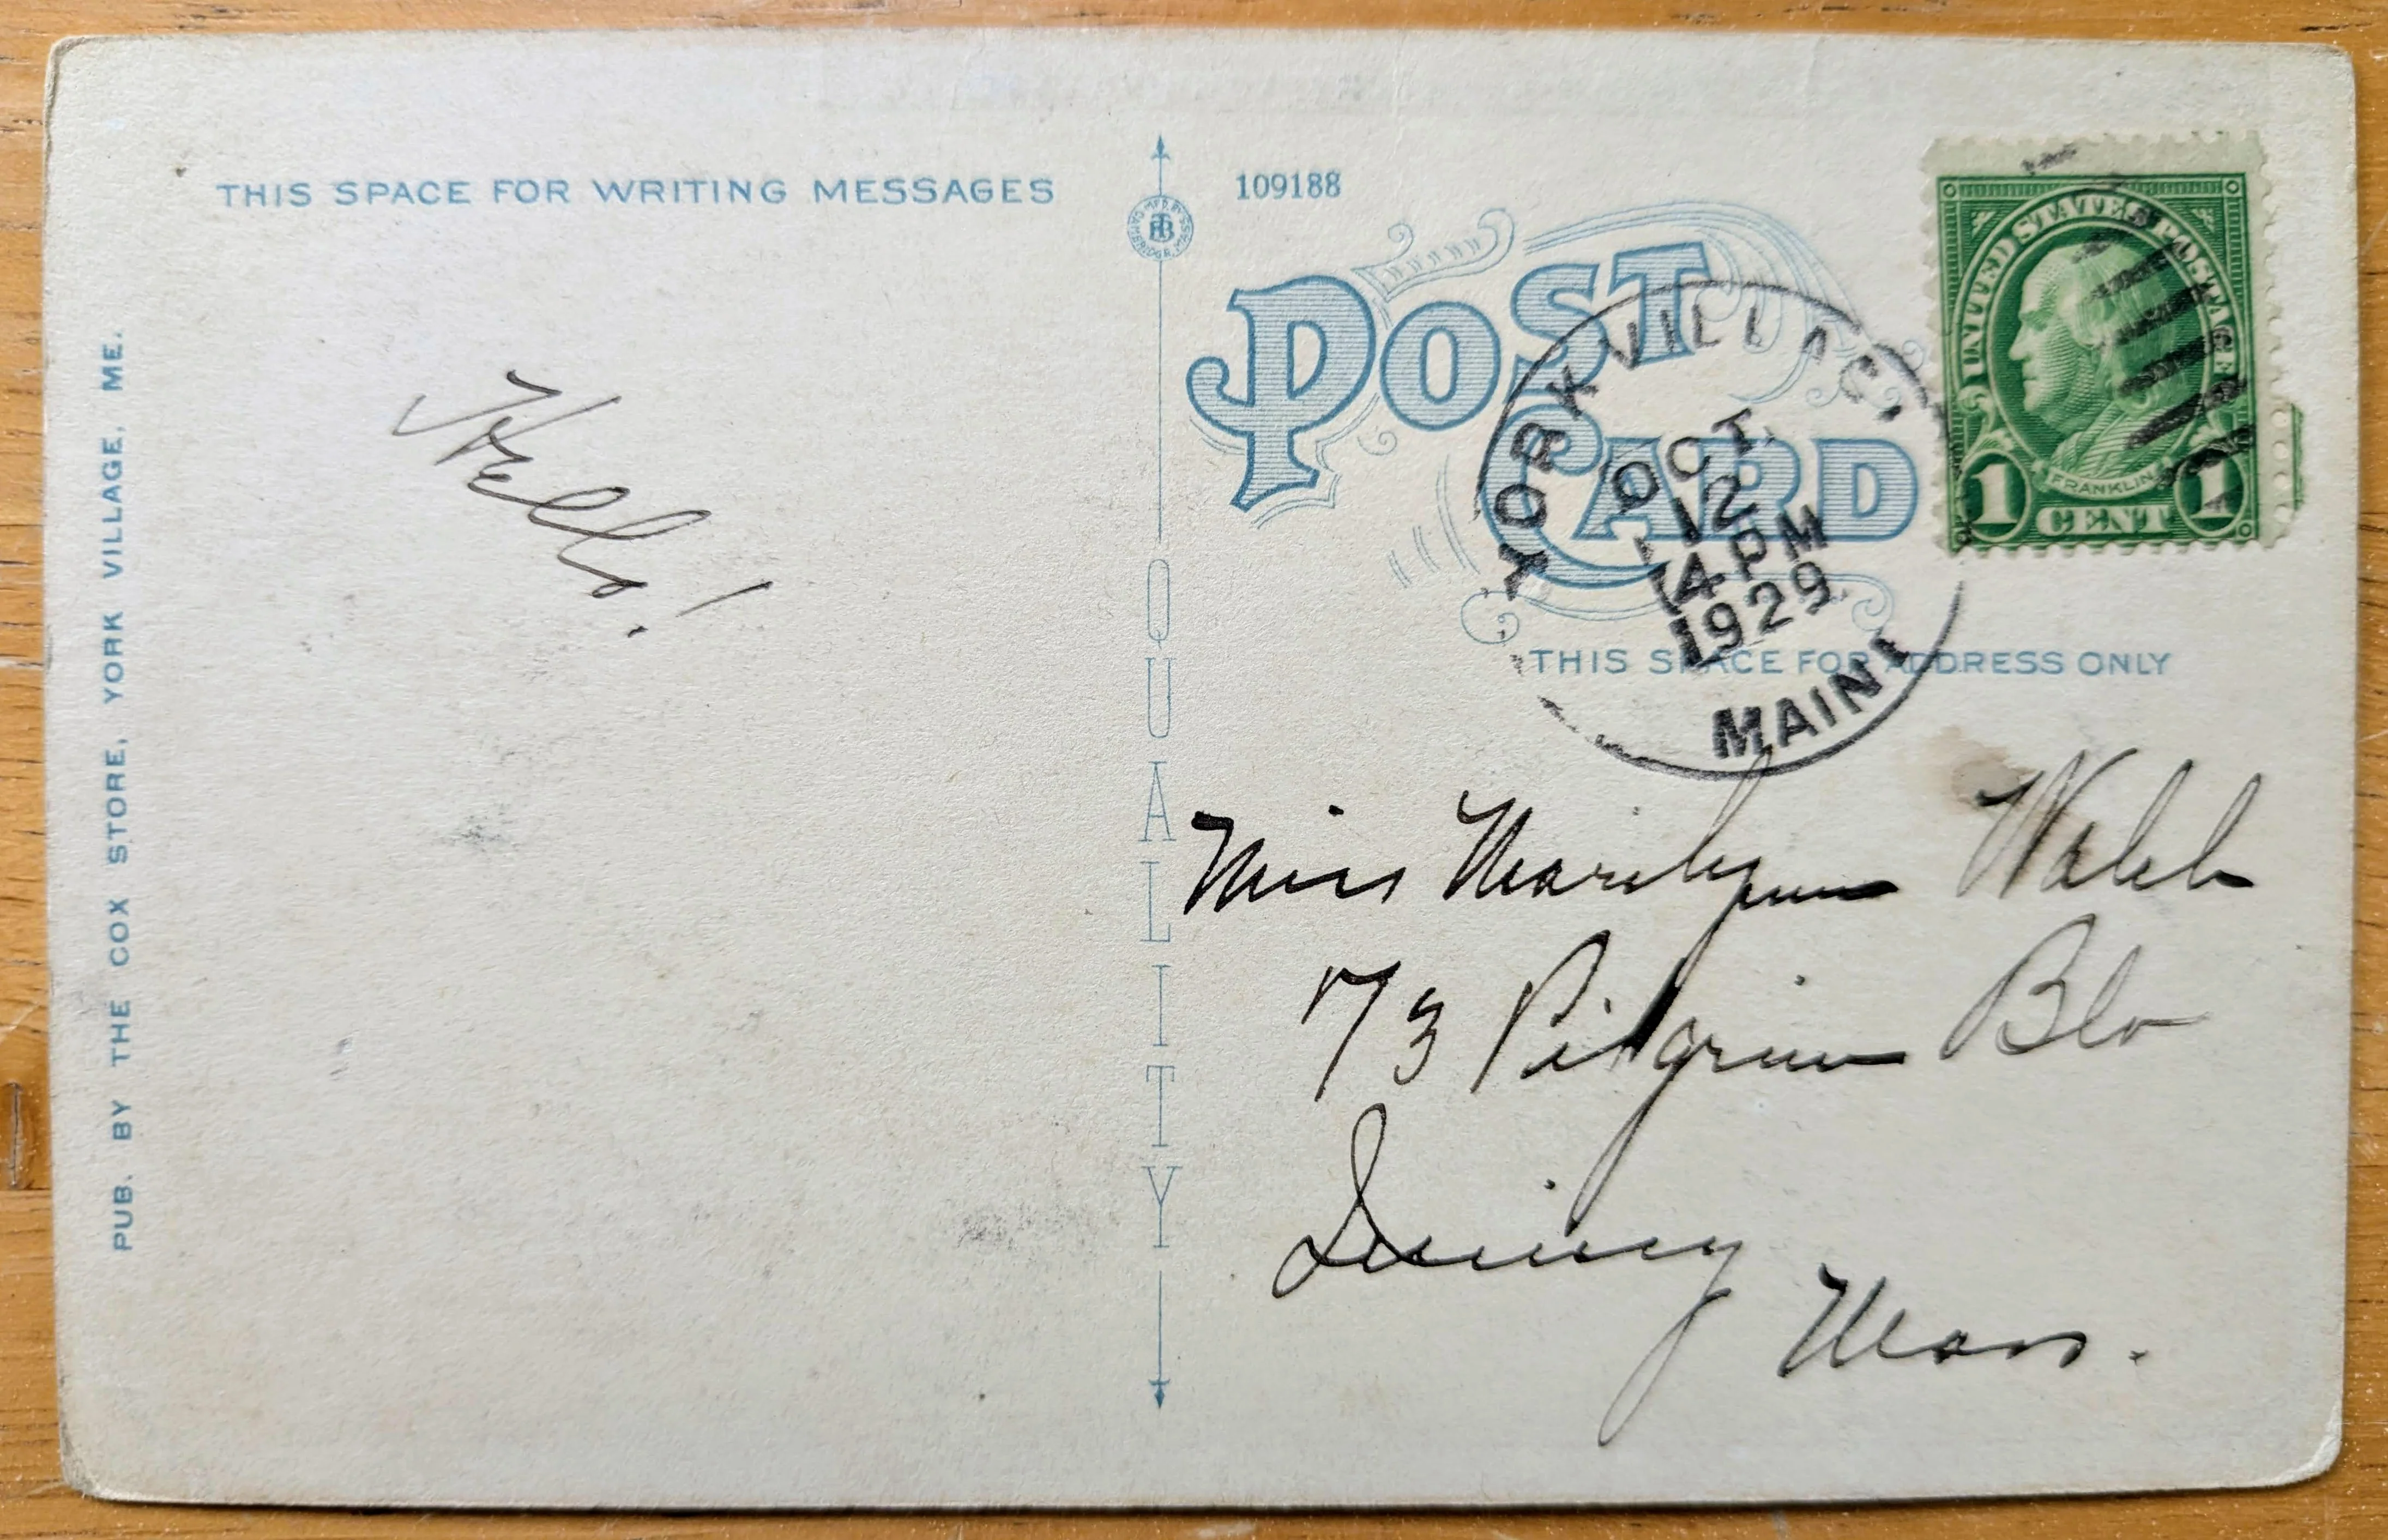 THIS SPACE FOR WRITING MESSAGES
109188
POST
CARD
UNITED STATES POSTAGE
FRANKLIN
1 CENT 1
YORK VILLAGE
OCT
12
4PM
1929
MAINE
THIS SPACE FOR ADDRESS ONLY
Hello!
QUALITY
PUB. BY THE COX STORE, YORK VILLAGE, ME.
Miss Marilynn Webb
73 Pilgrim
Quincy
Mass.